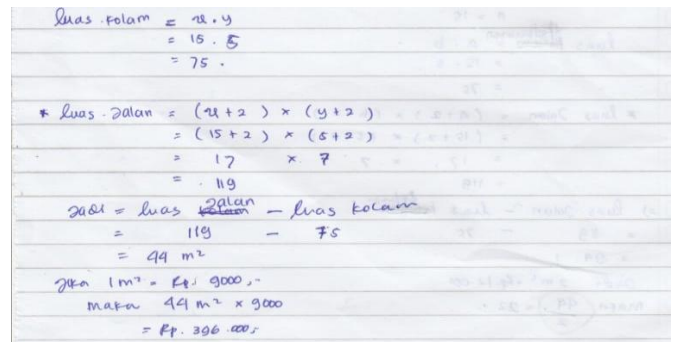 luas kolam = x . y
= 15 . 5
= 75 .
* luas jalan = (x + 2 ) × (y + 2 )
= ( 15 + 2 ) × ( 5 + 2 )
= 17 × 7
= 119
Jadi = luas jalan - luas kolam
= 119 - 75
= 44 m²
Jika 1 m² = Rp. 9000,-
maka 44 m² × 9000
= Rp. 396.000,-